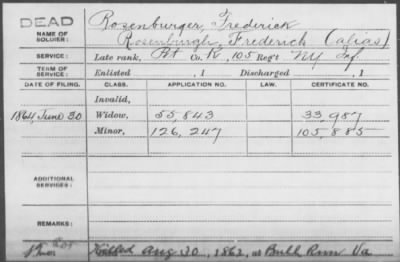 DEAD
NAME OF SOLDIER: Rosenburger, Frederick
Rosenburgh, Frederick (alias)
SERVICE: Late rank, Pvt Co. K, 105 Reg't NY Inf.
TERM OF SERVICE: Enlisted , 1 Discharged , 1
DATE OF FILING. CLASS. APPLICATION NO. CERTIFICATE NO.
Invalid,
1864, June 30 Widow, 55,843 33,987
Minor, 126,247 105,885
ADDITIONAL SERVICES:
REMARKS:
Killed Aug 30, 1862, at Bull Run Va